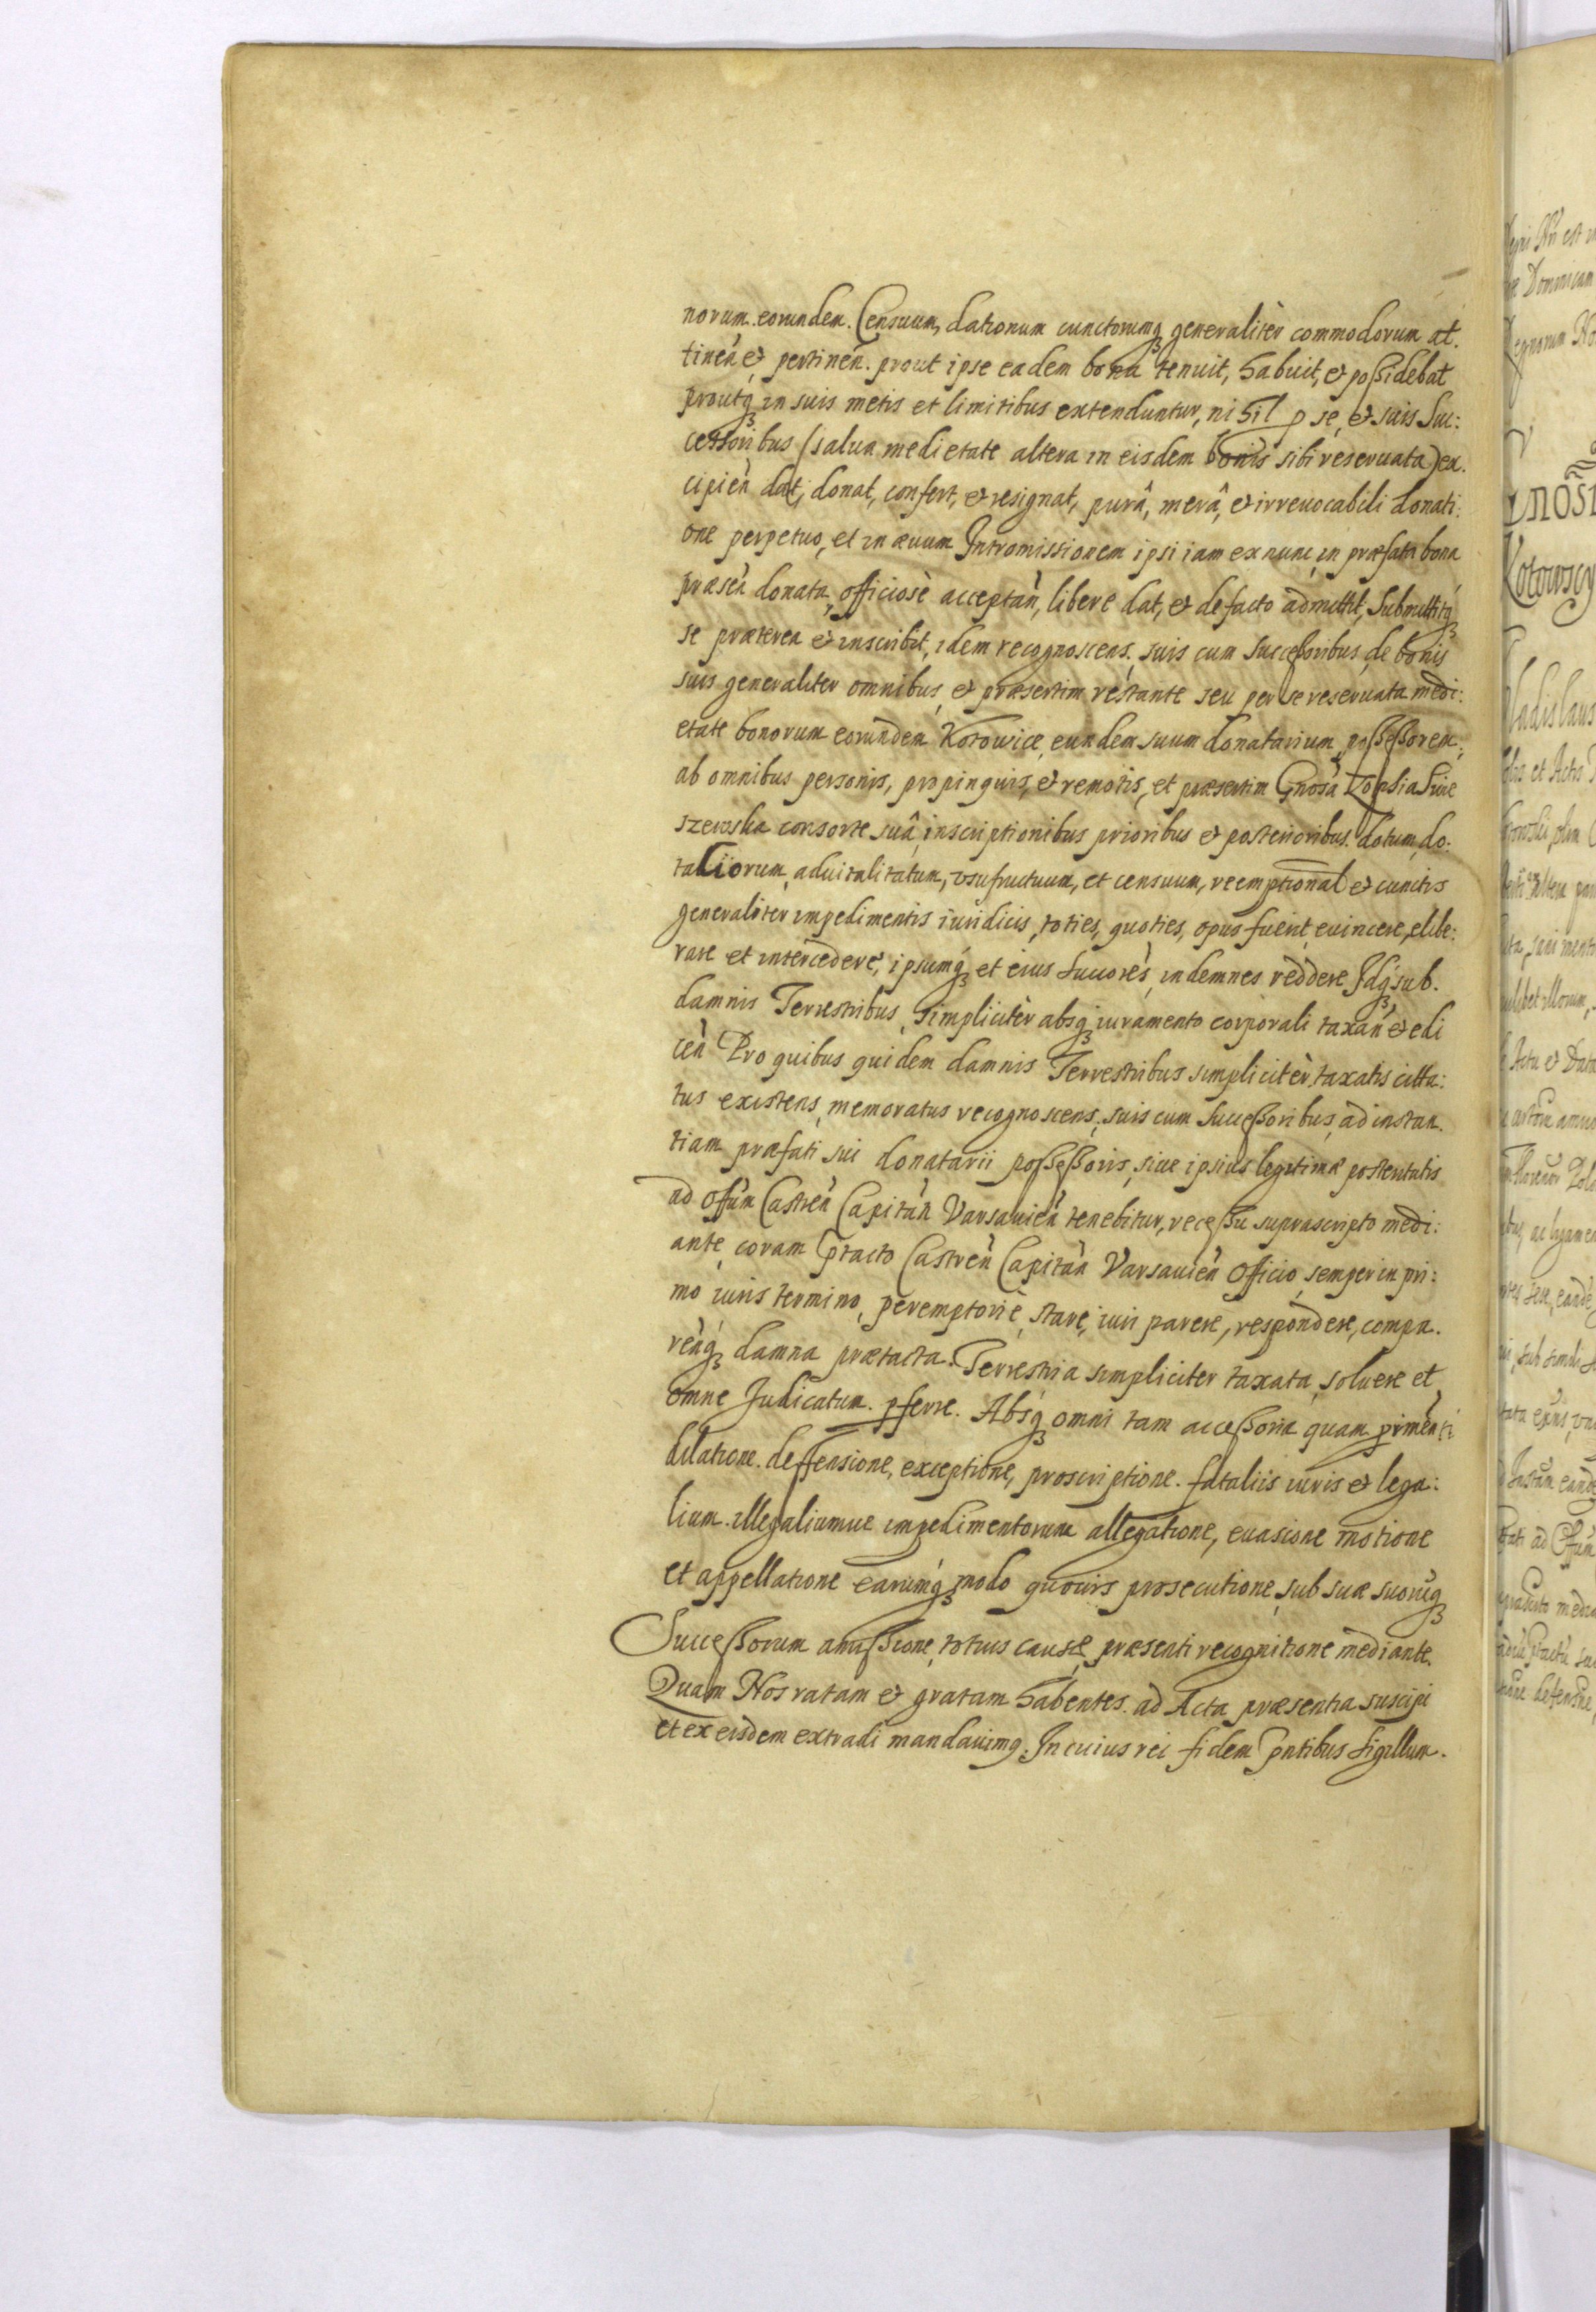 norum eorundem. Censuum, dationum cunctorumqꝫ generalitèr commodorum at.
tineñ et pertineñ. prout ipse eadem bona tenuit, habuit, et possidebat
proutqꝫ in suis metis et limitibus extenduntur, nihil p se, et suis Suc:
cessoribus (salua medietate altera in eisdem bonis sibi reseruata) ex.
cipieñ dat, donat, confert, et resignat, purâ, merâ, et irreuocabili donati:
one perpetuo, et in æuum Intromissionem ipsi iam ex nunc in præfata bona
præseñ donata, officiosè acceptañ, libere dat, et de facto admittit, Submittitqꝫ
se præterea et inscribit, idem recognoscens, suis cum Successoribus, de bonis
suis generaliter omnibus, et præsertim restante seu per se reseruata medi:
etate bonorum eorundem Kotowice, eundem suum donatarium, possessorem,
ab omnibus personis, propinquis, et remotis, et præsertim Gnosa Zophia Swie
szewska consorte suâ, inscriptionibus prioribus et posterioribus. dotum, do:
taliiorum, aduitalitatum, vsufructuum, et censuum, reemptional et cunctis
generaliter impedimentis iuridicis, toties, quoties, opus fuerit, euincere, elibe:
rare et intercedere, ipsumqꝫ et eius Succores, indemnes reddere Idqꝫ sub.
damnis Terrestribus, simplicitèr absqꝫ iuramento corporali taxañ et edi
ceñ Pro quibus quidem damnis Terrestribus simplicitèr taxatis citta:
tus existens, memoratus recognoscens, suis cum Successoribus, ad instan.
tiam præfati sui donatarii possessoris, siue ipsius legitimæ posteritatis
ad Offum Castreñ Capitañ Varsauieñ tenebitur, recessu suprascripto medi:
ante, coram Ptacto Castreñ Capitañ Varsauieñ Officio, semper in pri:
mo iuris termino, peremptoriè, stare, iuri parere, respondere, compa.
reñqꝫ damna prætacta. Terrestria simpliciter taxata, soluere et
omne Judicatum. pferre. Absqꝫ omni tam accessoria quam primeñti
dilatione. deffensione, exceptione, proscriptione. fataliis iuris et lega:
lium. illegaliumue impedimentorum allegatione, euasione motione
et appellatione earumqꝫ modo quouis prosecutione, sub suæ suorũqꝫ
Successorum amissione, totius causæ, præsenti recognitione mediante.
Quam Nos ratam et gratam habentes. ad Acta præsentia suscipi
et ex eisdem extradi mandauimꝯ. In cuius rei fidem Pntibus Sigillum.